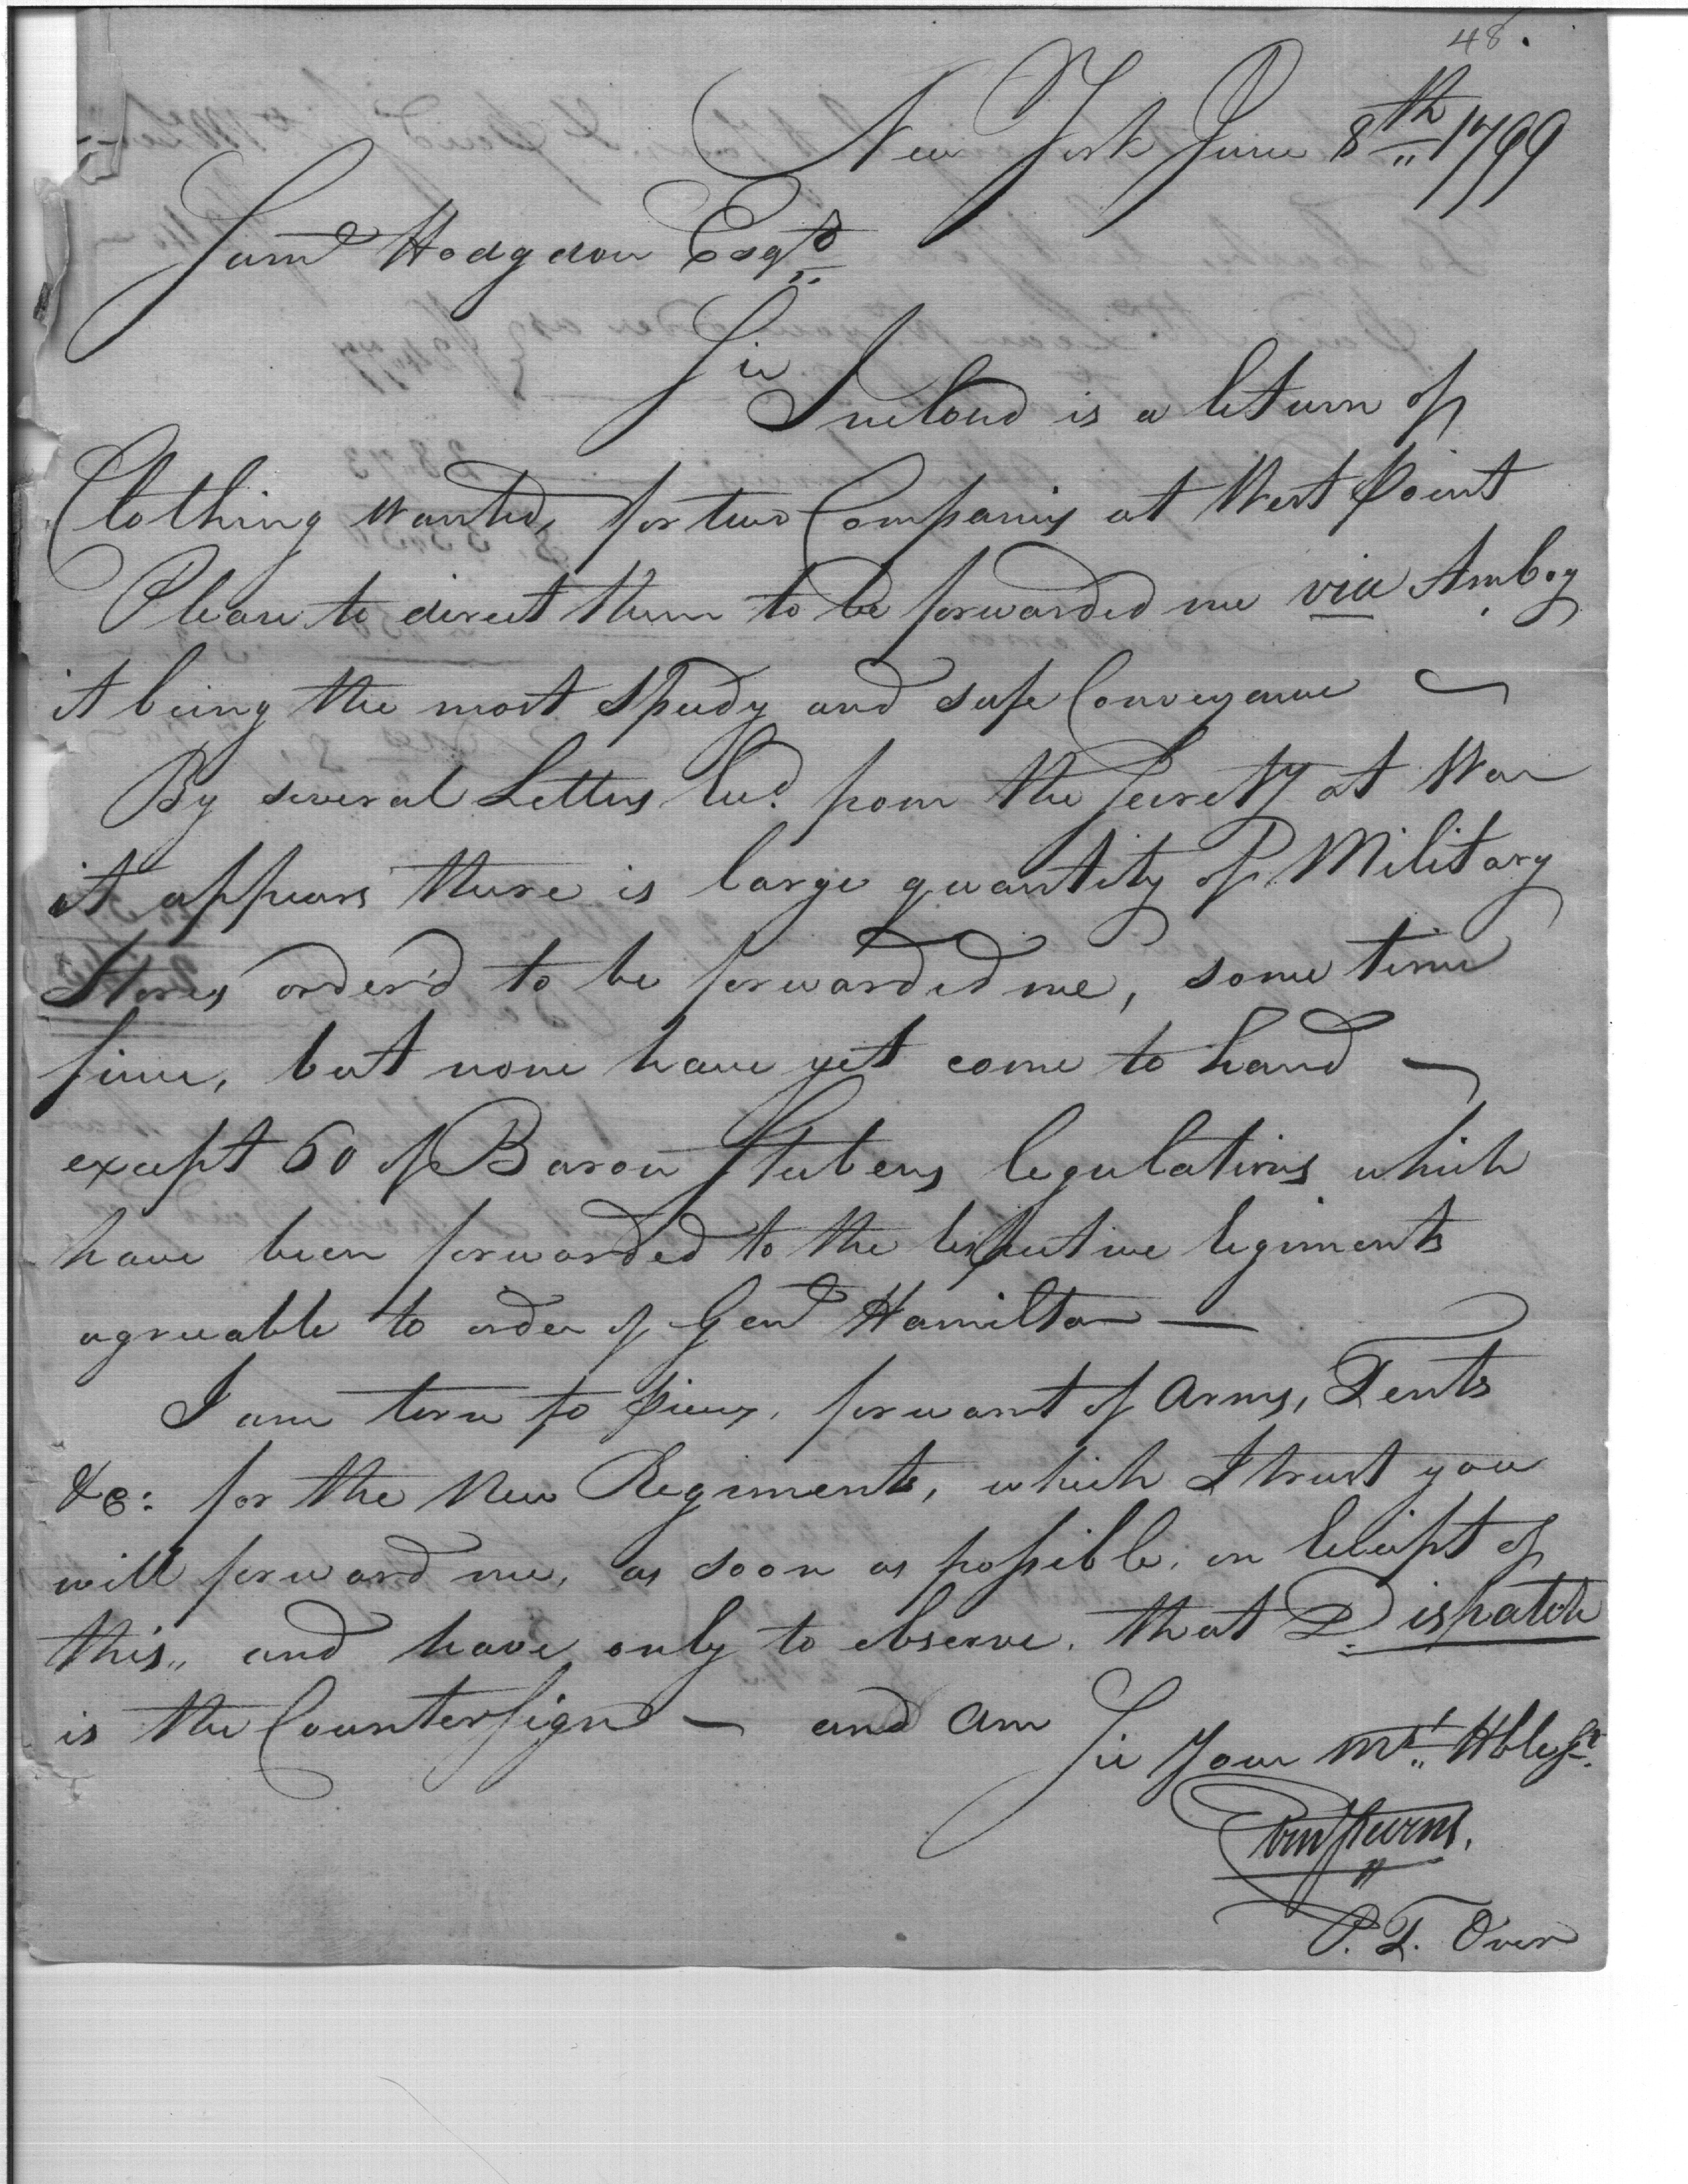 48.
New York June 8th 1799
Saml Hodgdon Esqr
Sir
Inclosd is a Return of
Clothing wanted, for two Companys at West Point
Please to direct them to be forwarded me via Amboy
it being the most Speedy and safe Conveyance
By several Letters Recd. from the Secrety at War
it appears there is large quantity of Military
Stores order'd to be forwarded me, some time
since, but none have yet come to hand —
except 60 of Baron Stubens Regulations which
have been forwarded to the respective Regiments
agreeable to order of Genl Hamilton —
I am torn to pieces, for want of Arms, Tents
&c: for the New Regiments, which I trust you
will forward me, as soon as possible, on Receipt of
this,, and have only to observe, that Dispatch
is the Countersign — and am
Sir Your Mt. Hble St.
Ebenr Stevens.
P. T. Over